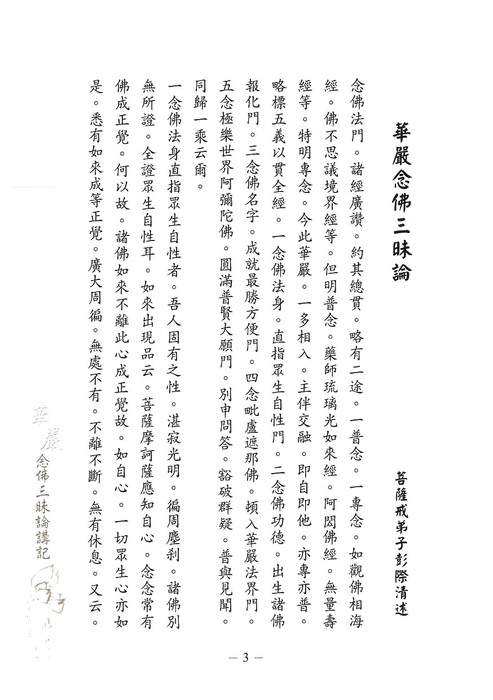 華嚴念佛三昧論
菩薩戒弟子彭際清述
念佛法門。諸經廣讚。約其總貫。略有二途。一普念。一專念。如觀佛相海
經。佛不思議境界經等。但明普念。藥師琉璃光如來經。阿閦佛經。無量壽
經等。特明專念。今此華嚴。一多相入。主伴交融。即自即他。亦專亦普。
略標五義以貫全經。一念佛法身。直指眾生自性門。二念佛功德。出生諸佛
報化門。三念佛名字。成就最勝方便門。四念毗盧遮那佛。頓入華嚴法界門。
五念極樂世界阿彌陀佛。圓滿普賢大願門。別申問答。豁破群疑。普與見聞。
同歸一乘云爾。
一念佛法身直指眾生自性者。吾人固有之性。湛寂光明。徧周塵剎。諸佛別
無所證。全證眾生自性耳。如來出現品云。菩薩摩訶薩應知自心。念念常有
佛成正覺。何以故。諸佛如來不離此心成正覺故。如自心。一切眾生心亦如
是。悉有如來成等正覺。廣大周徧。無處不有。不離不斷。無有休息。又云。
華嚴
念佛三昧論講記
— 3 —